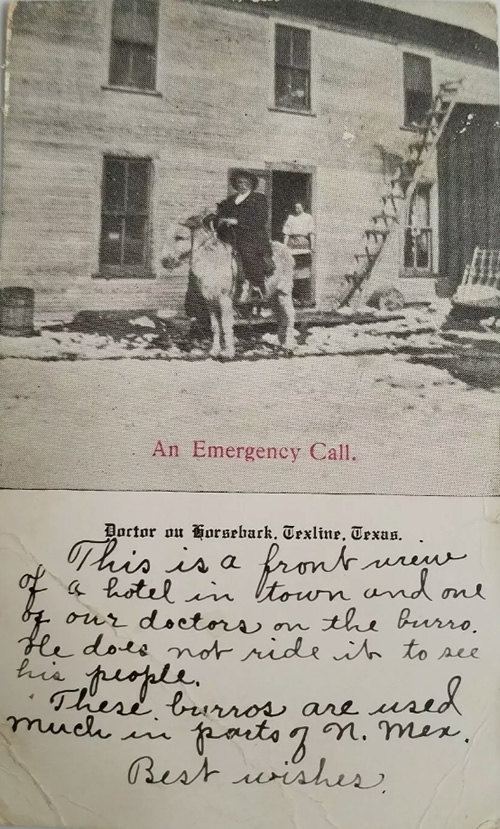 An Emergency Call.
Doctor on Horseback, Texline, Texas.
This is a front view
of a hotel in town and one
of our doctors on the burro.
He does not ride it to see
his people.
These burros are used
much in parts of N. Mex.
Best wishes.